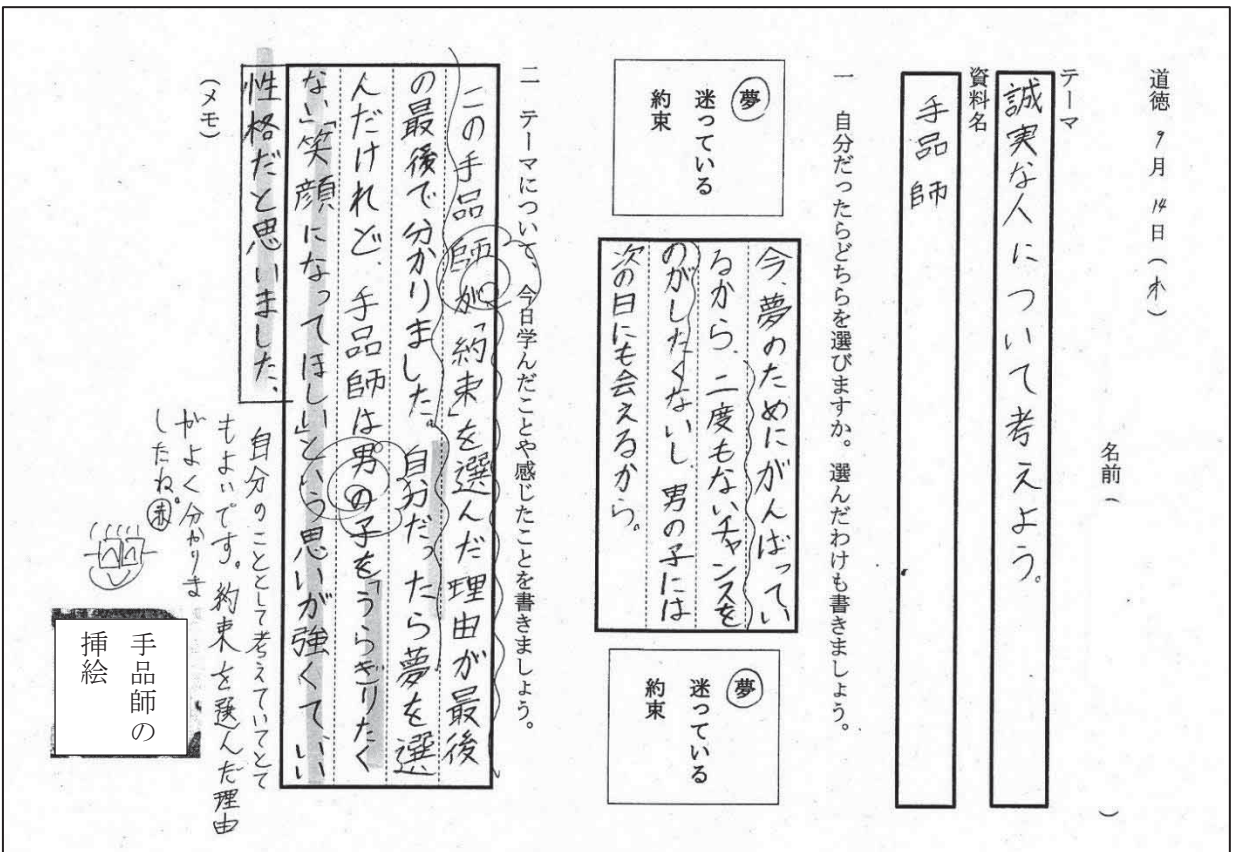 道徳 9月 14日(木)
名前( )
テーマ
誠実な人について考えよう。
資料名
手品師
一 自分だったらどちらを選びますか。選んだわけも書きましょう。
夢
迷っている
約束
今、夢のためにがんばってい
るから、二度もないチャンスを
のがしたくないし、男の子には
次の日にも会えるから。
夢
迷っている
約束
二 テーマについて、今日学んだことや感じたことを書きましょう。
この手品師が「約束」を選んだ理由が最後
の最後で分かりました。自分だったら夢を選
んだけれど、手品師は男の子を「うらぎりたく
ない」「笑顔になってほしい」という思いが強くて、いい
性格だと思いました。
(メモ)
自分のこととして考えていてとて
もよいです。約束を選んだ理由
がよく分かりま
したね。
手品師の
挿絵